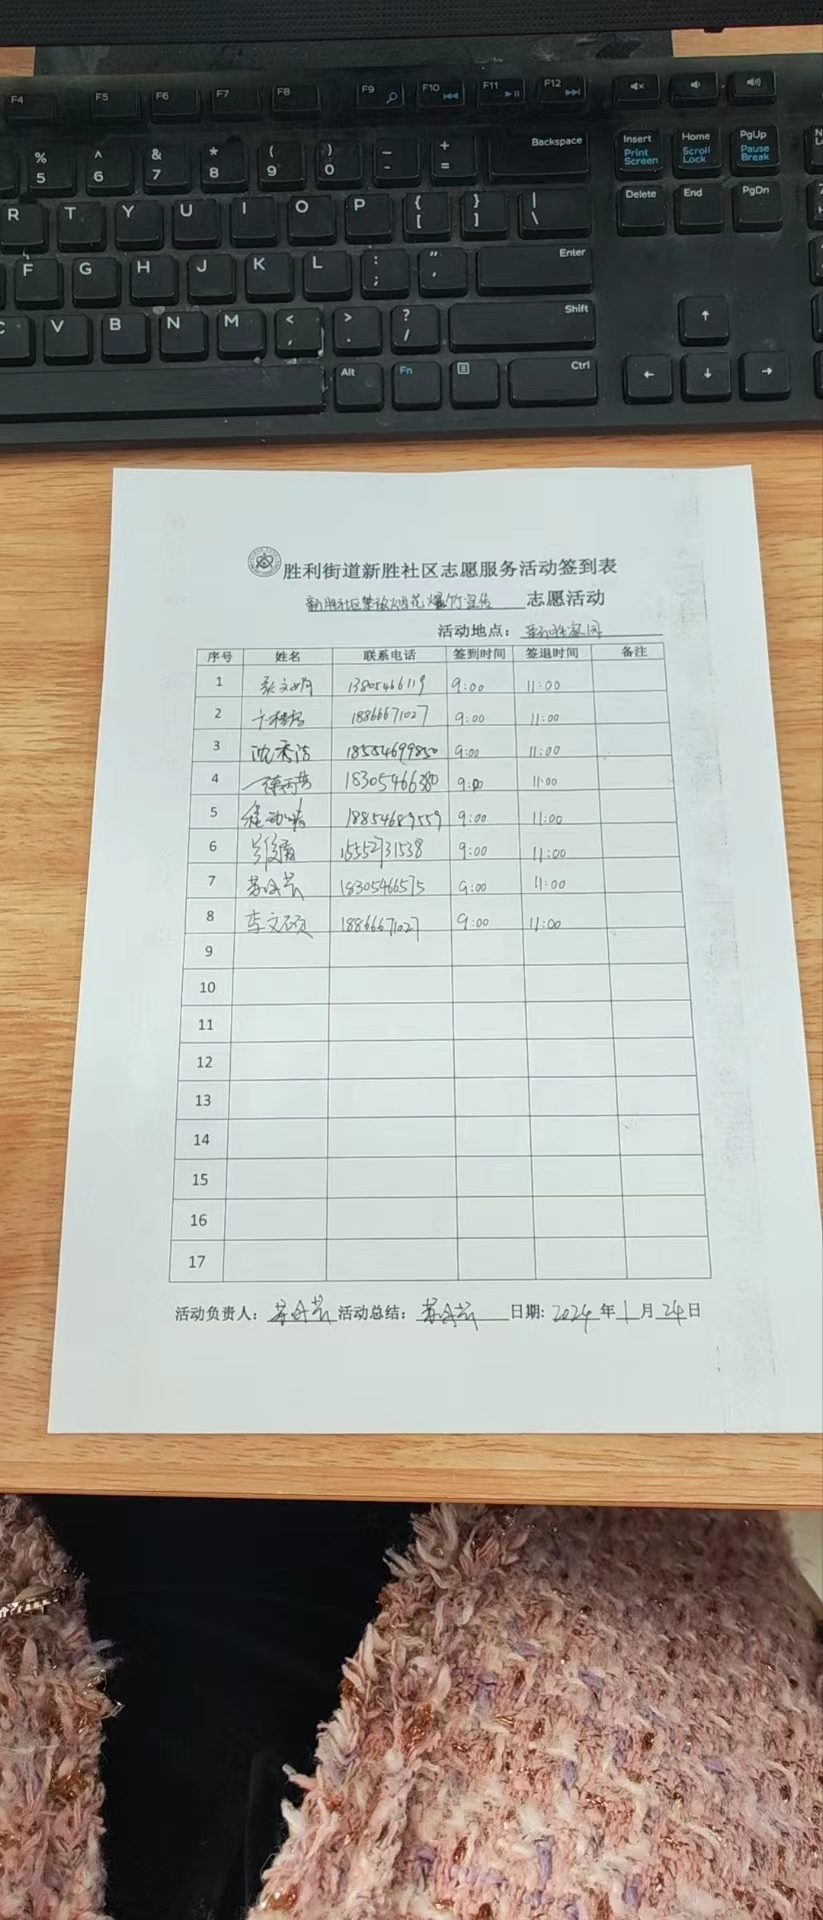 F4 F5 F6 F7 F8 F9 F10 F11 F12
% 5 ^ 6 & 7 * 8 ( 9 ) 0 _ - + = Backspace Insert Print Screen Home Scroll Lock PgUp Pause Break
R T Y U I O P { [ } ] | \ Delete End PgDn
F G H J K L : ; " ' Enter
C V B N M < , > . ? / Shift
Alt Fn Ctrl
胜利街道新胜社区志愿服务活动签到表
新胜社区禁放烟花爆竹宣传 志愿活动
活动地点: 新胜家园
序号 姓名 联系电话 签到时间 签退时间 备注
1 13805466119 9:00 11:00
2 18866671027 9:00 11:00
3 沈秀洁 18554699850 9:00 11:00
4 18305466380 9:00 11:00
5 18854689559 9:00 11:00
6 15552731538 9:00 11:00
7 18305466575 9:00 11:00
8 李文硕 18866671027 9:00 11:00
9
10
11
12
13
14
15
16
17
活动负责人: 活动总结: 日期: 2024 年 1 月 24 日